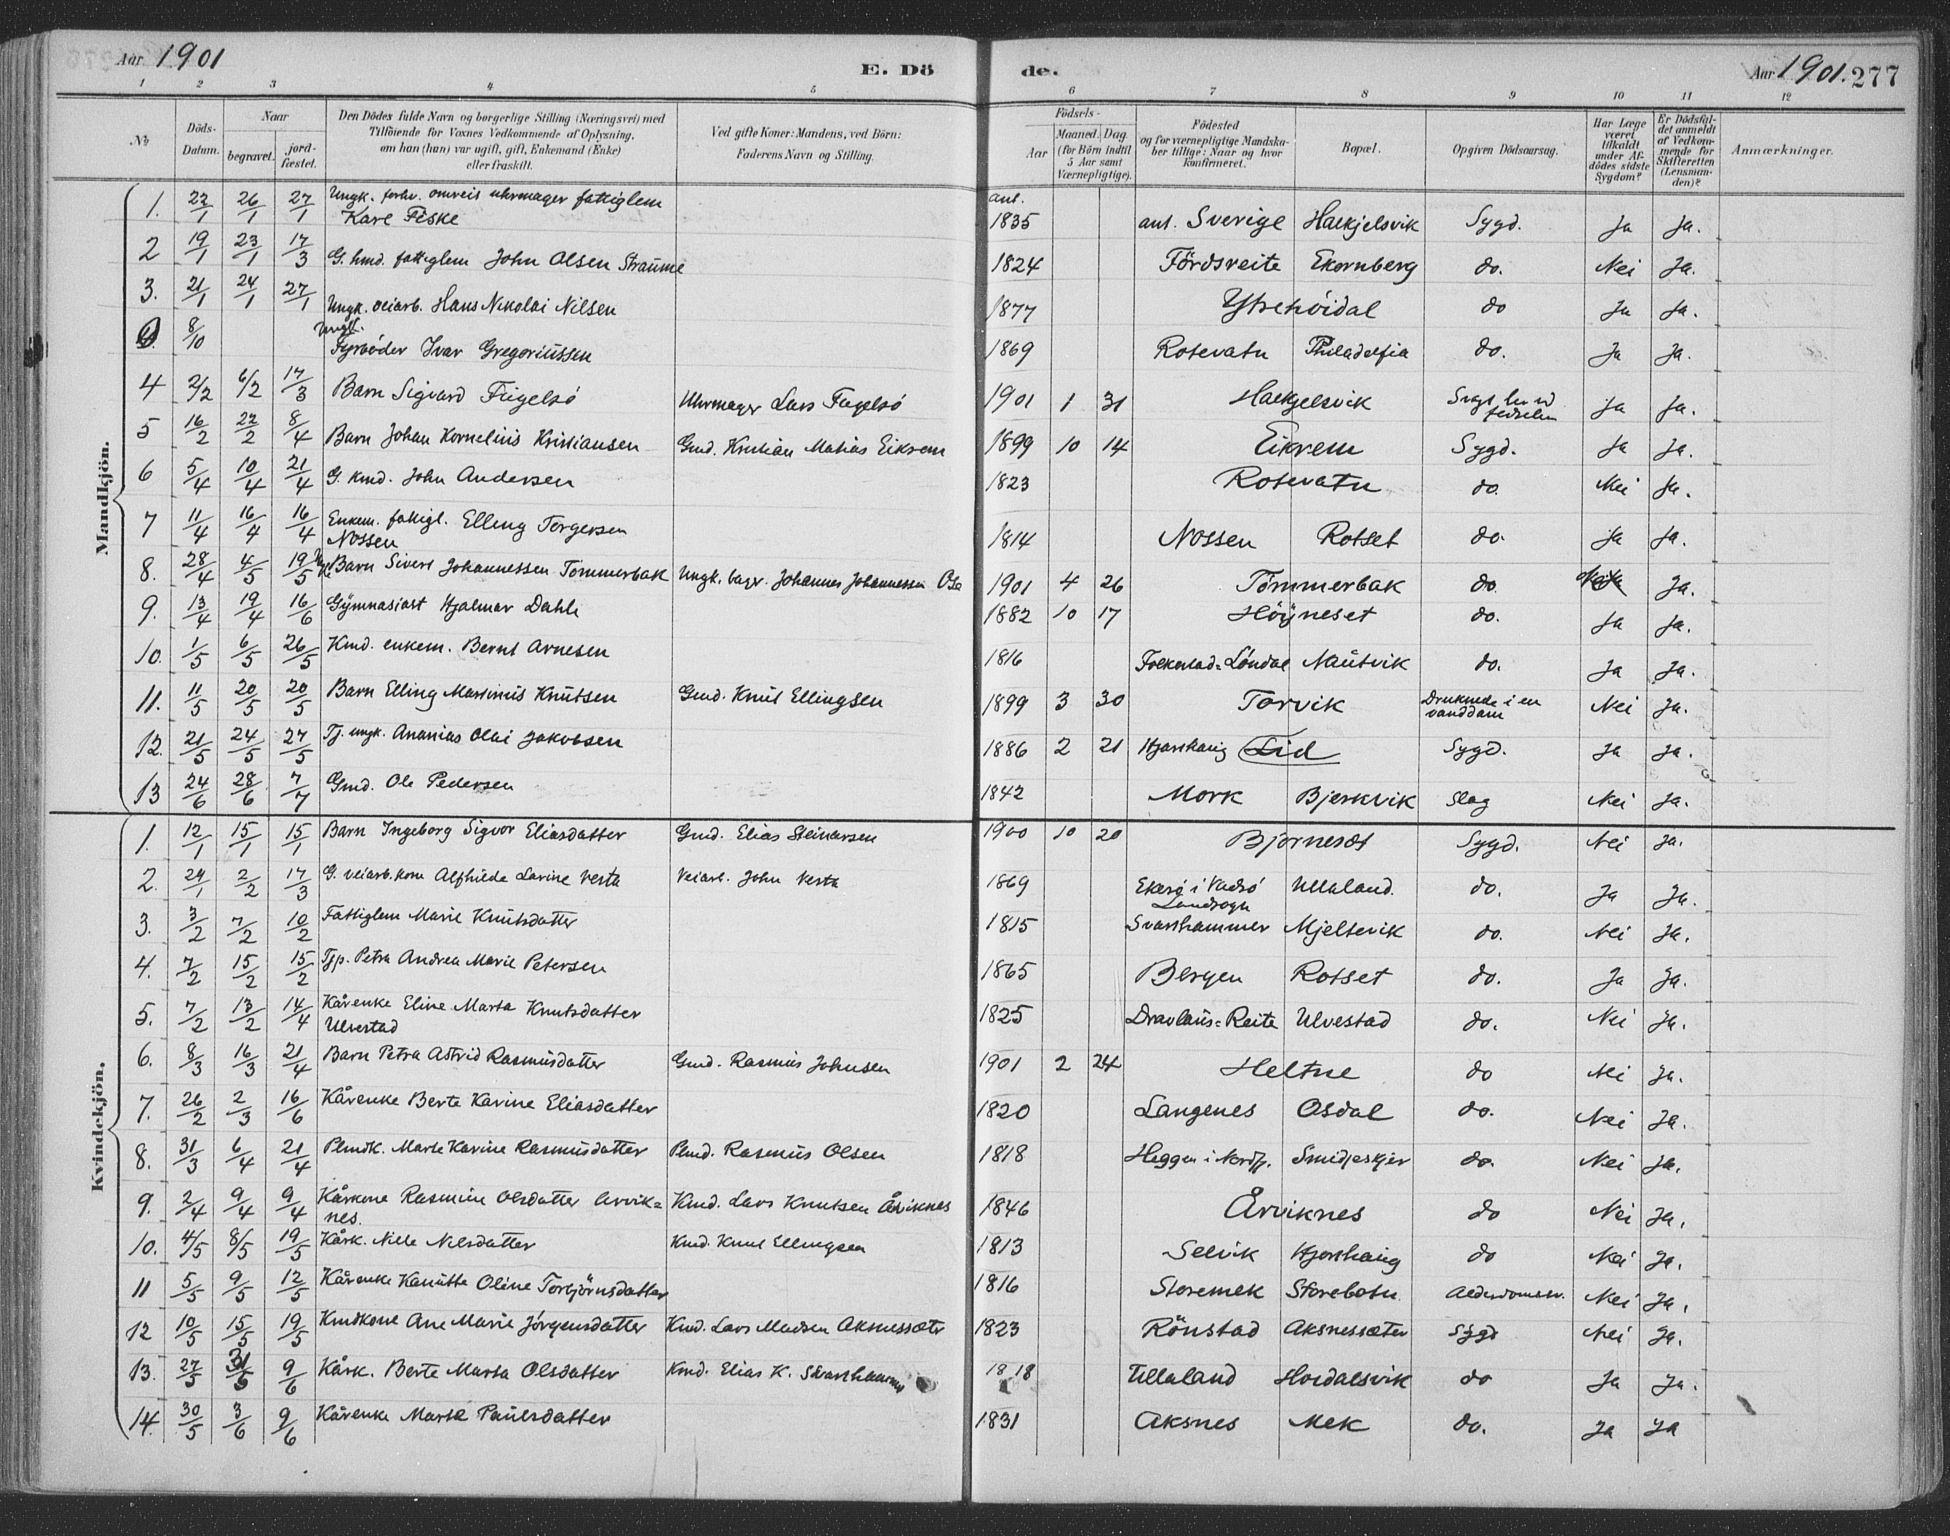 Aar 1901
E. Dö de.
Aar 1901. 277
1 2 3 4 5 6 7 8 9 10 11 12
№
Döds-Datum.
Naar
begravet.
jord-fæstet.
Den Dödes fulde Navn og borgerlige Stilling (Næringsvei) med
Tilföiende for Voxnes Vedkommende af Oplysning,
om han (hun) var ugift, gift, Enkemand (Enke)
eller fraskilt.
Ved gifte Koner: Mandens, ved Börn:
Faderens Navn og Stilling.
Födsels-
Aar
Maaned. Dag
(for Börn indtil
5 Aar samt
Værnepligtige).
Födested
og for værnepligtige Mandska-
ber tillige: Naar og hvor
konfirmeret.
Bopæl.
Opgiven Dödsaarsag.
Har Læge
været
tilkaldt
under Af-
dödes sidste
Sygdom?
Er Dödsfal-
det anmeldt
af Vedkom-
mende for
Skifteretten
(Lensman-
den)?
Anmærkninger.
Mandkjön.
1. 22/1 26/1 27/1 Ungk. forhv. omreis uhrmager fattiglem
Karl Fiske ant. 1835 ant. Sverige Haekjelsvik Sygd. Ja Ja.
2 19/1 23/1 17/3 G. kmd. fattiglem John Olsen Straume 1824 Fördsreite Ekornberg do. Nei Ja.
3. 21/1 24/1 27/1 Ungk. veiarb. Hans Nikolai Nilsen 1877 Ytrehöidal do Ja Ja.
8/10 Ungk.
Fyrböder Ivar Gregoriussen 1869 Rotevatn Philadelfia do. Ja Ja.
4 2/2 6/2 17/3 Barn Sigvard Fugelsö Uhrmager Lars Fugelsö 1901 1 31 Haekjelsvik Ja Ja.
5 16/2 22/2 8/4 Barn Johan Kornelius Kristiansen Gmd. Kristian Matias Eikrem 1899 10 14 Eikrem Sygd. Ja Ja.
6 5/4 10/4 21/4 G. kmd. John Andersen 1823 Rotevatn do. Nei Ja.
7 11/4 16/4 16/4 Enkem. fattigl. Elling Torgersen
Nossen 1814 Nossen Rotset do. Ja Ja.
8. 28/4 4/5 19/5 Barn Sivert Johannessen Tömmerbak Ungk. bager. Johannes Johannessen Ose 1901 4 26 Tömmerbak do. Ja.
9. 13/4 19/4 16/6 Gymnasiast Hjalmar Dahle 1882 10 17 Höyneset do. Ja Ja.
10. 1/5 6/5 26/5 Kmd. enkem. Bernt Arnesen 1816 Folkestad-Löndal Nautvik do. Ja Ja.
11. 11/5 20/5 20/5 Barn Elling Marsimus Knutsen Gmd. Knut Ellingsen 1899 3 30 Torvik Druknede i en
vanddam Nei Ja.
12. 21/5 24/5 27/5 Tj. ungk. Ananias Olai Jakobsen 1886 2 21 Hjorthaug Lid Sygd. Ja Ja.
13 24/6 28/6 7/7 Gmd. Ole Pedersen 1842 Mork Bjerkvik Slag Nei Ja.
Kvindekjön.
1. 12/1 15/1 15/1 Barn Ingeborg Sigvor Eliasdatter Gmd. Elias Steinarsen 1900 10 20 Björneset Sygd. Nei Ja.
2. 24/1 2/2 17/3 G. veiarb.kone Alfhilde Lavine Verta Veiarb. John Verta 1869 Ekerö i Vadsö
Landsogn Ullaland. do. Ja Ja.
3. 3/2 7/2 10/2 Fattiglem Marie Knutsdatter 1815 Svarthammer Mjeltevik do. Nei Ja.
4. 7/2 15/2 15/2 Tjp. Petra Andrea Marie Petersen 1865 Bergen Rotset do. Ja Ja.
5. 7/2 13/2 14/4 Kårenke Eline Marta Knutsdatter
Ulvestad 1825 Dravlaus-Reite Ulvestad do. Nei Ja.
6. 8/3 16/3 21/4 Barn Petra Astrid Rasmusdatter Gmd. Rasmus Johnsen 1901 2 24 Heltne do Nei Ja.
7. 26/2 2/3 16/6 Kårenke Berte Karine Eliasdatter 1820 Langenes Osdal do. Nei Ja.
8. 31/3 6/4 21/4 Plmdk. Marte Karine Rasmusdatter Plmd. Rasmus Olsen 1818 Heggen i Nordfj. Smidjeskjer do. Nei Ja.
9. 2/4 9/4 9/4 Kårkone Rasmine Olsdatter Aarvik=
nes. Kmd. Lars Knutsen Årviknes 1846 Årviknes do Nei Ja.
10. 4/5 8/5 19/5 Kårk. Nille Nilsdatter Kmd. Knut Ellingsen 1813 Selvik Hjorthaug do Nei Ja.
11 5/5 9/5 12/5 Kårenke Kanutte Oline Torbjörnsdatter 1816 Storemek Storebotn. Alderdomssv. Nei Ja.
12 10/5 15/5 19/5 Kmdkone Ane Marie Jörgensdatter Kmd. Lars Madsen Aksnessæter 1823 Rönstad Aksnessæter Sygd Nei Ja.
13. 27/5 31/5 9/6 Kårk. Berte Marta Olsdatter Kmd. Elias K. Svarthammer 1818 Ullaland Hordalsvik do Ja Ja.
14. 30/5 3/6 9/6 Kårenke Marte Paulsdatter 1831 Aksnes Mek do. Ja Ja